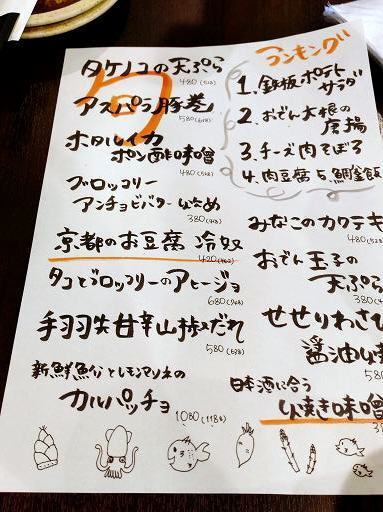 旬
タケノコの天ぷら
480(528)
アスパラ豚巻
580(638)
ホタルイカ
ポン酢味噌
480(528)
ブロッコリー
アンチョビバター炒め
380(418)
京都のお豆腐 冷奴
420(462)
タコとブロッコリーのアヒージョ
680(748)
手羽先甘辛山椒だれ
580(638)
新鮮魚介とレモンマリネの
カルパッチョ
1080(1188)
ランキング
1. 鉄板ポテト
サラダ
2. おでん大根の
唐揚
3. チーズ肉そぼろ
4. 肉豆腐 5. 鯛釜飯
みなこのカクテキ
480(528
おでん玉子の
天ぷら
380(4
せせりわさび
醤油炒
580(
日本酒に合う
炙焼き味噌